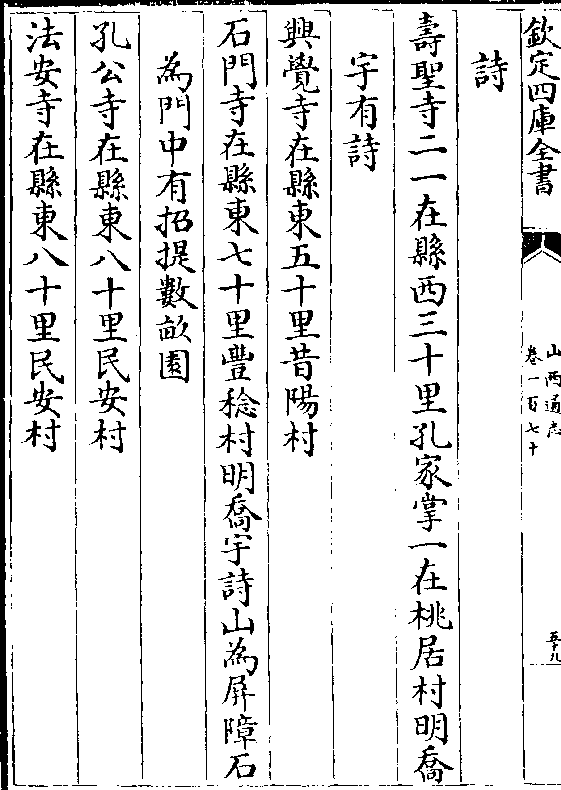 欽定四庫全書
山西通志
卷一百七十
五十九
詩
壽聖寺二一在縣西三十里孔家掌一在桃居村明喬
宇有詩
興覺寺在縣東五十里昔陽村
石門寺在縣東七十里豐稔村明喬宇詩山為屏障石
為門中有招提數畝園
孔公寺在縣東八十里民安村
法安寺在縣東八十里民安村